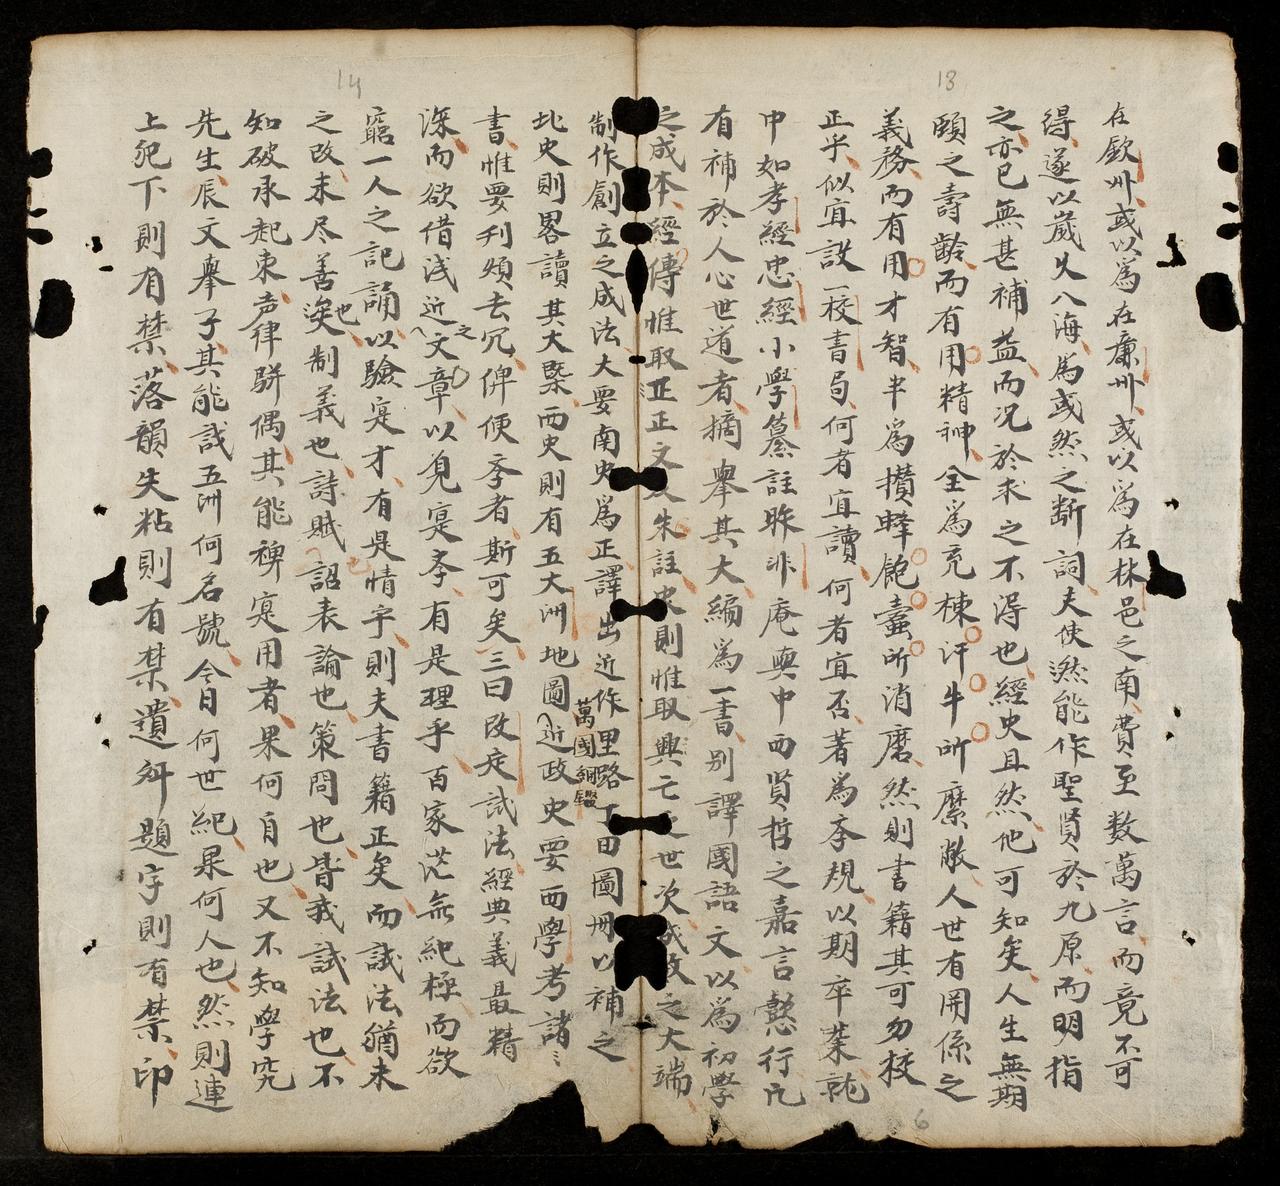 18
在欽州或以爲在廉州或以爲在林邑之南費至數萬言而竟不可
得遂以歲久八海爲或然之斷詞夫使能作聖賢於九原而明指
之亦已無甚補益而况於求之不得也經史且然他可知矣人生無期
頤之壽齡而有用精神全爲充棟汗牛所縻敝人世有関係之
義務而有用才智半爲攢蜂飽蠹所消磨然則書籍其可勿校
正乎似宜設一校書局何者宜讀何者宜否著爲斈規以期卒業就
中如孝經忠經小學纂註暌非庵與中西賢哲之嘉言懿行凢
有補於人心世道者摘舉其大編爲一書别譯國語文以爲初學
之成本經傳惟取正正文及朱註史則惟取興亡之世次成敗之大端
14
制作創立之成法大要南史爲正譯出近作里路丁田圖册以補之
萬國綱鑑
北史則畧讀其大槩西史則有五大洲地圖近政史要西學考諸〻
書惟要刋煩去冗俾便斈者斯可矣三曰改定試法經典義最精
深而欲借浅近之文章以見寔斈有是理乎百家茫無紀極而欲
窮一人之記誦以驗寔才有是情乎則夫書籍正矣而試法猶未
之改未尽善矣也制義也詩賦也詔表論也策問也皆我試法也不
知破承起束声律駢偶其能裨寔用者果何自也又不知學究
先生辰文舉子其能識五洲何名號今日何世紀果何人也然則連
上犯下則有禁落韻失粘則有禁遺舛題字則有禁印
6